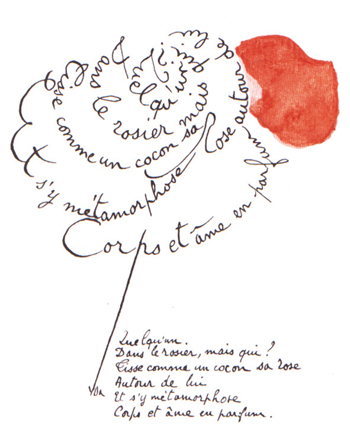 Quelqu'un
Dans le rosier mais qui
Tisse comme un cocon sa
Rose autour de lui
Et s'y métamorphose
Corps et âme en parfum
Quelqu'un.
Dans le rosier, mais qui?
Tisse comme un cocon sa rose
Autour de lui
Et s'y métamorphose
Corps et âme en parfum.